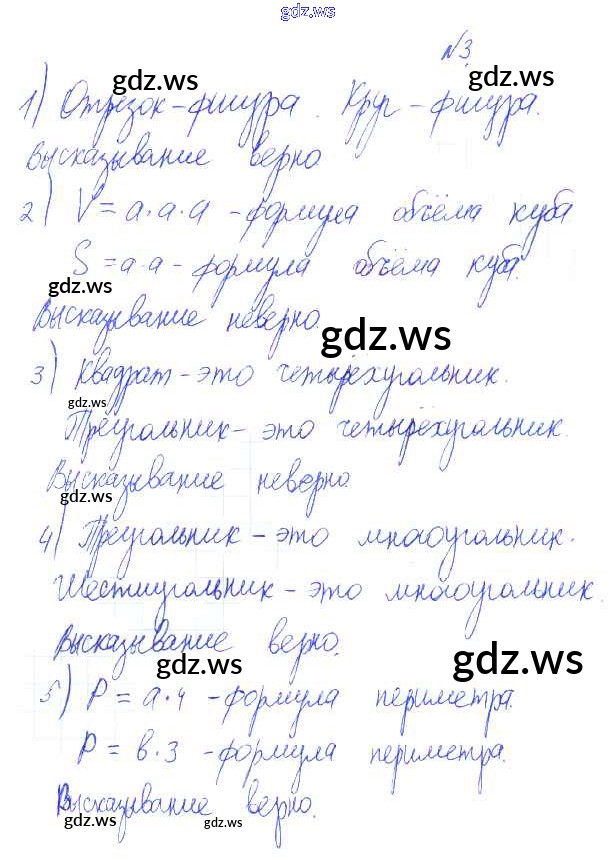 gdz.ws
№3
gdz.ws gdz.ws
1) Отрезок - фигура. Круг - фигура.
Высказывание верно
gdz.ws
2) V = a·a·a - формула объёма куба
S = a·a - формула объёма куба.
gdz.ws
Высказывание неверно.
gdz.ws
3) Квадрат - это четырёхугольник.
gdz.ws
Треугольник - это четырёхугольник.
Высказывание неверно
gdz.ws
4) Треугольник - это многоугольник.
Шестиугольник - это многоугольник.
Высказывание верно.
gdz.ws gdz.ws
5) P = a·4 - формула периметра.
P = b·3 - формула периметра.
Высказывание верно.
gdz.ws gdz.ws